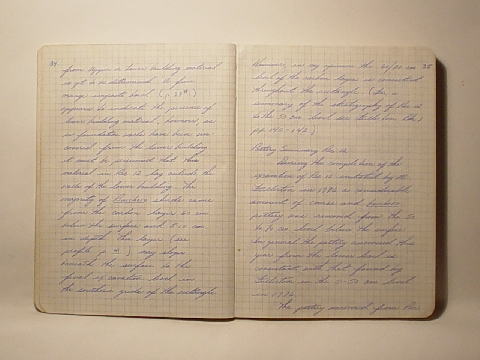 34
from upper or lower building material
as yet is undetermined. A few
appears to indicate the presence of
lower building material, however, as
no foundation walls have been un-
covered from the lower building
it must be assumed that this
material in Pas 12 lay outside the
walls of the lower building. The
majority of sherds came
from the carbon layer 50 cm
below the surface and 5-10 cm
in depth. This layer (see
profile p. ) may slope
beneath the surface in the
final excavation level in
the southern grids of the rectangle.
However, in my opinion the 60/80 cm 35
level of the carbon layer is consistent
throughout the rectangle. (For a
summary of the stratigraphy of Pas 12
to the 50 cm level see
pp. 140-142)
Pottery Summary Pas 12
During the completion of the
excavation of Pas 12 initiated by the
in 1982 a considerable
amount of coarse and
pottery was removed from the 50
to 70 cm level below the surface.
In general the pottery removed this
year from the lower level is
consistent with that found by
in the 0-50 cm level
in 1982.
The pottery removed from Pas